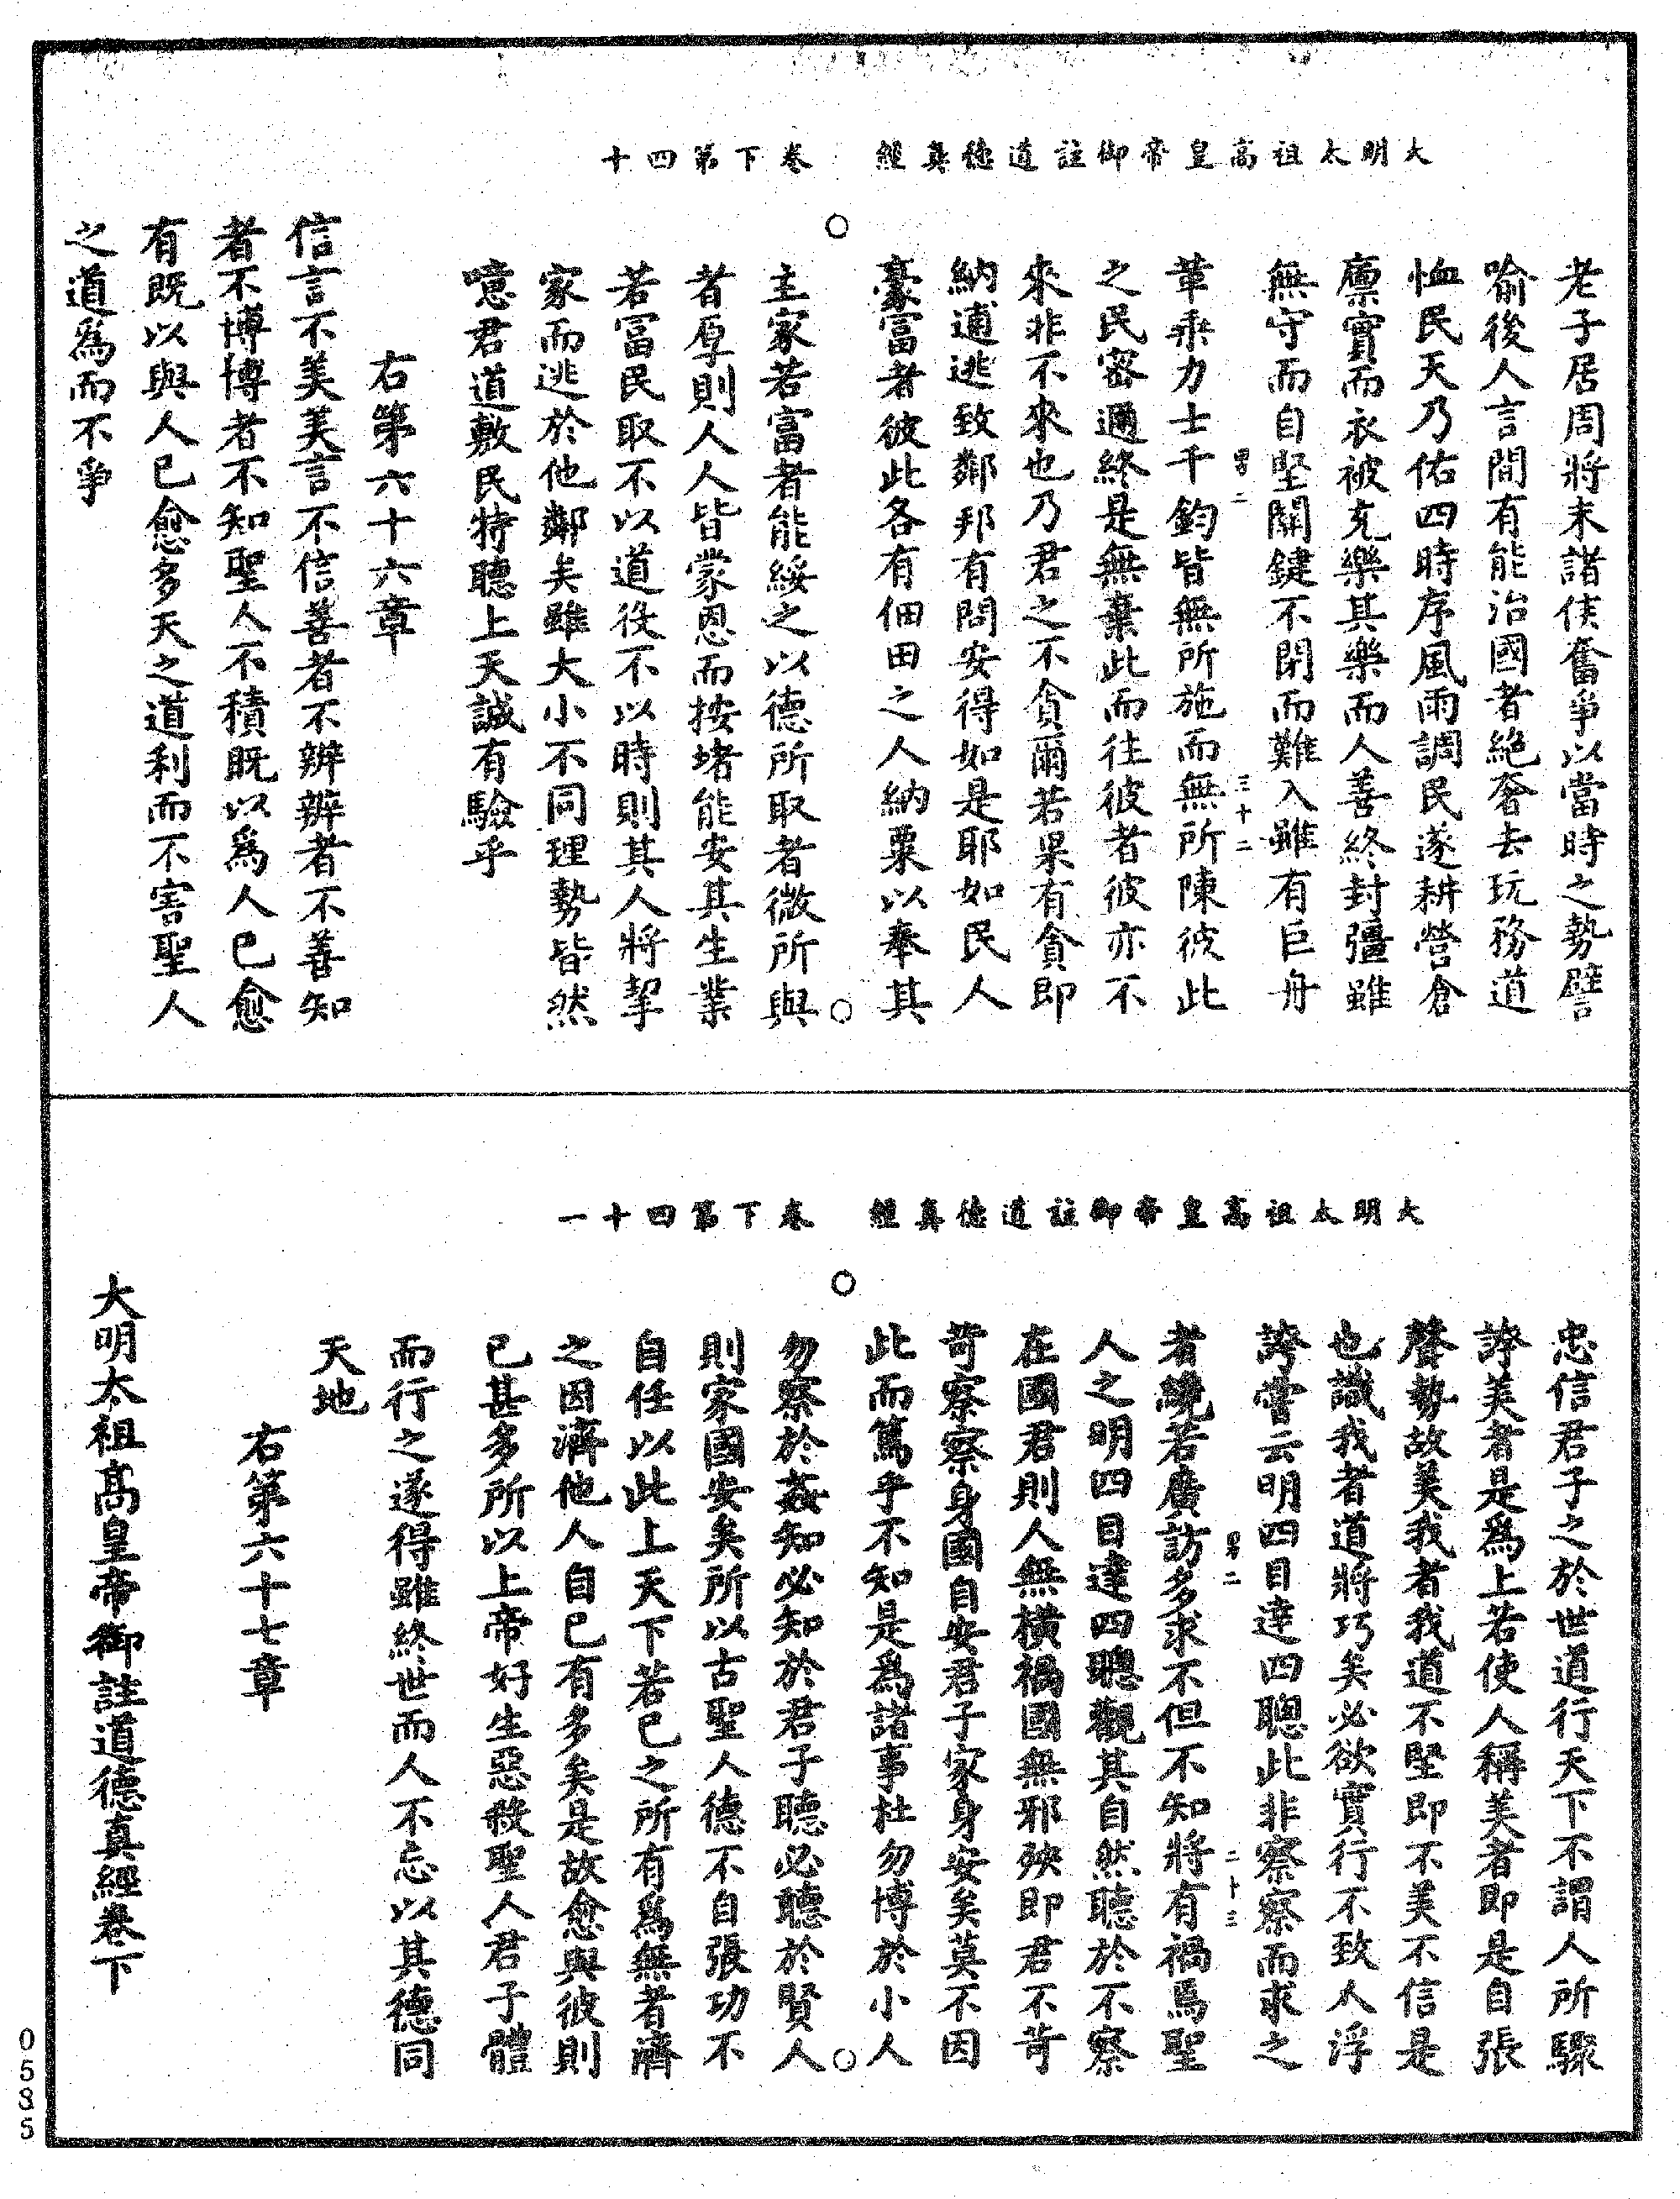 大明太祖高皇帝御註道德真經　卷下第四十
老子居周將末諸侯奮爭以當時之勢譬
喻後人言間有能治國者絕奢去玩務道
恤民天乃佑四時序風雨調民遂耕營倉
廩實而衣被充樂其樂而人善終封彊雖
無守而自堅關鍵不閉而難入雖有巨舟
三十二
葦乘力士千鈞皆無所施而無所陳彼此
之民密邇終是無棄此而往彼者彼亦不
來非不來也乃君之不貪爾若果有貪即
納逋逃致鄰邦有問安得如是耶如民人
豪富者彼此各有佃田之人納粟以奉其
主家若富者能綏之以德所取者微所與
者厚則人人皆蒙恩而按堵能安其生業
若富民取不以道役不以時則其人將挈
家而逃於他鄰矣雖大小不同理勢皆然
噫君道敷民特聽上天誠有驗乎
右第六十六章
信言不美美言不信善者不辨辨者不善知
者不博博者不知聖人不積既以為人已愈
有既以與人已愈多天之道利而不害聖人
之道為而不爭
大明太祖高皇帝御註道德真經　卷下第四十一
忠信君子之於世道行天下不謂人所驟
誇美者是為上若使人稱美者即是自張
聲勢故美我者我道不堅即不美不信是
也識我者道將巧矣必欲實行不致人浮
誇嘗云明四目達四聰此非察察而求之
二十三
者繞若廣訪多求不但不知將有禍焉聖
人之明四目達四聰觀其自然聽於不察
在國君則人無橫禍國無邪殃即君不苛
苛察察身國自安君子家身安矣莫不因
此而篤乎不知是為諸事杜勿博於小人
勿察於姦知必知於君子聽必聽於賢人
則家國安矣所以古聖人德不自張功不
自任以此上天下若已之所有為無者濟
之因濟他人自已有多矣是故愈與彼則
已甚多所以上帝好生惡殺聖人君子體
而行之遂得雖終世而人不忘以其德同
天地
右第六十七章
大明太祖高皇帝御註道德真經卷下
0585